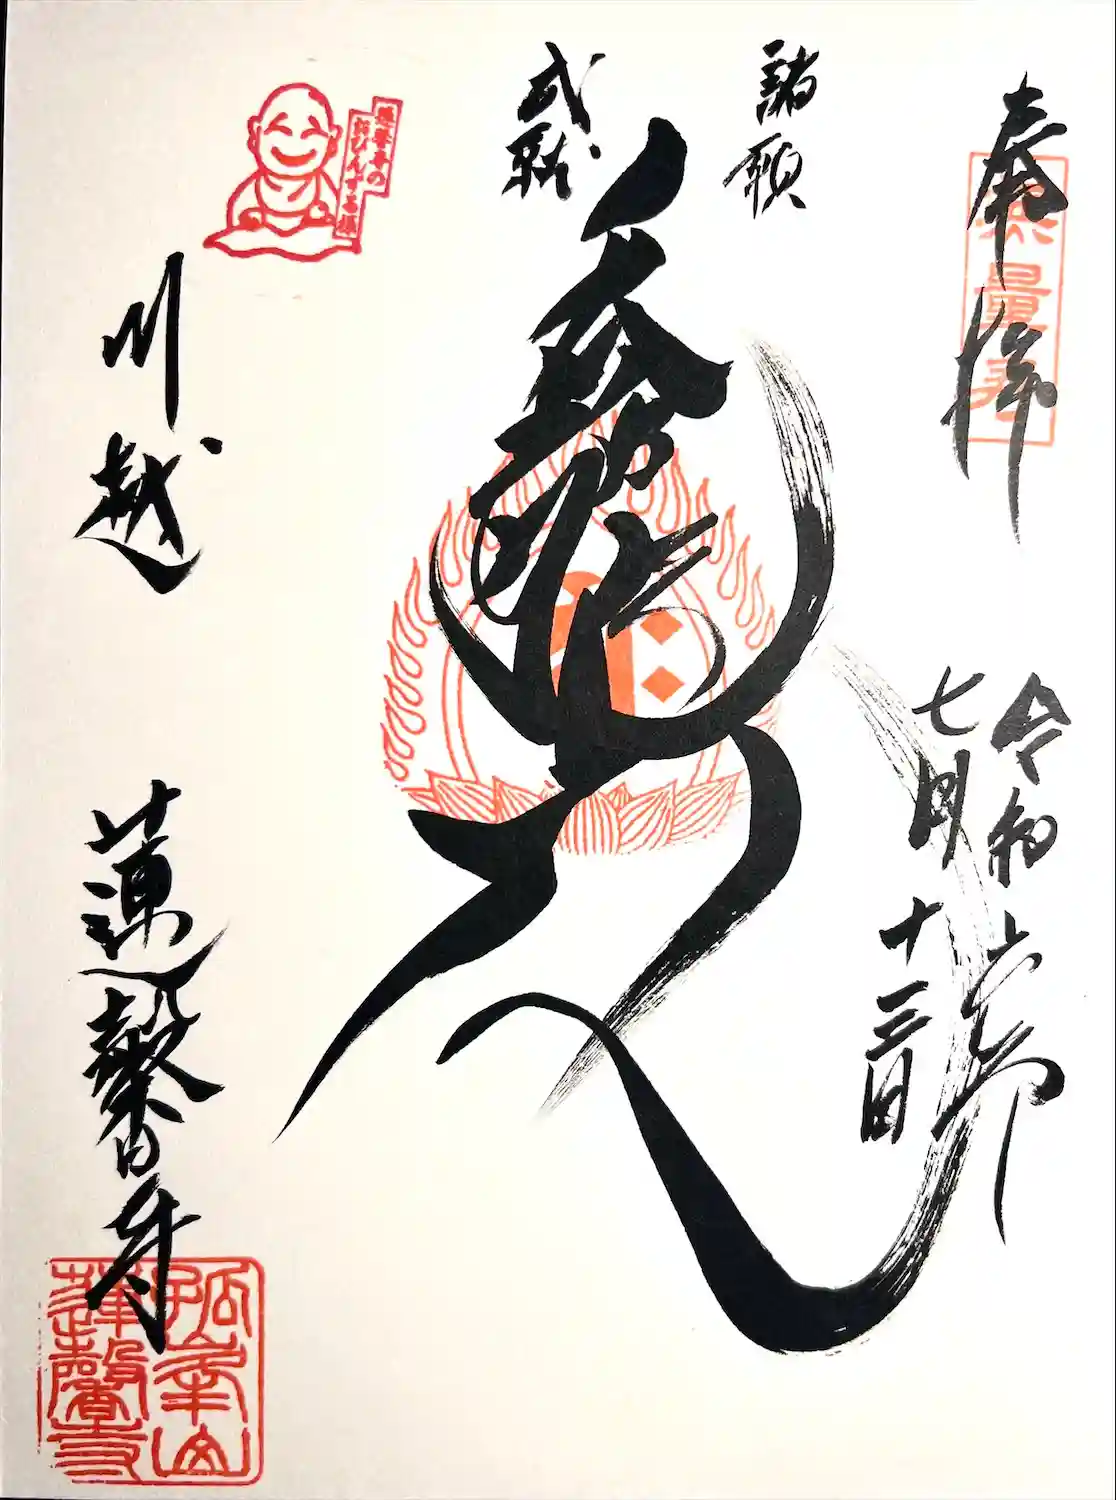 奉拝
無量寿
令和六年
七月十三日
諸願
成就
蓮馨寺の
おびんずる様
川越
蓮馨寺
孤峯山
蓮馨寺